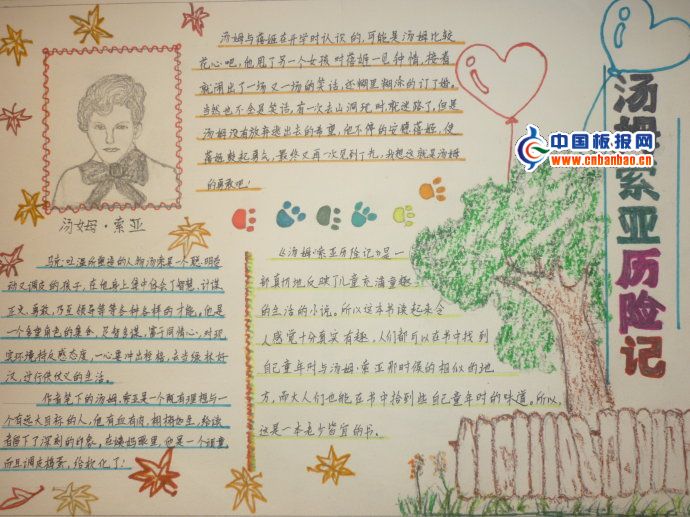 汤姆·索亚历险记
中国板报网
www.cnbanbao.cn
汤姆与蓓姬在开学时认识的,可能是汤姆比较
花心吧,他甩了另一个女孩对蓓姬一见钟情,接着
就闹出了一场又一场的笑话,还糊里糊涂的订了婚。
当然也不全是笑话,有一次去山洞玩时就迷路了,但是
汤姆没有放弃逃出去的希望,他不停的安慰蓓姬,使
蓓姬鼓起勇气,最终又再一次见到了光,我想这就是汤姆
的勇敢吧!
汤姆·索亚
马克·吐温所塑造的人物汤姆是一个聪明好
动又调皮的孩子,在他身上集中体会了智慧、计谋
正义、勇敢,乃至领导等等多种多样的才能,他是
一个多重角色的集合,足智多谋,富于同情心,对现
实环境持反感态度,一心要冲出桎梏,去当绿林好
汉,过行侠仗义的生活。
作者笔下的汤姆·索亚是一个既有理想与一
个有远大目标的人,他有血有肉,栩栩如生,给读
者留下了深刻的印象。在姨妈眼里,他是一个顽童,
而且调皮捣蛋,
《汤姆·索亚历险记》是一
部真切地反映了儿童充满童趣
的生活的小说。所以这本书读起来令
人感觉十分真实有趣,人们都可在书中找到
自己童年时与汤姆·索亚那时候的相似的地
方,而大人们也能在书中拾到些自己童年时的味道。所以,
这是一本老少皆宜的书。